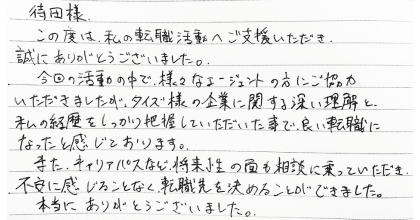 待田様.
この度は、私の転職活動へご支援いただき、
誠にありがとうございました。
今回の活動の中で、様々なエージェントの方にご協力
いただきましたが、タイズ様の企業に関する深い理解と、
私の経歴をしっかり把握していただいた事で、良い転職に
なったと感じております。
また、キャリアパスなど、将来性の面も相談に乗っていただき、
不安に感じることなく、転職先を決めることができました。
本当にありがとうございました。